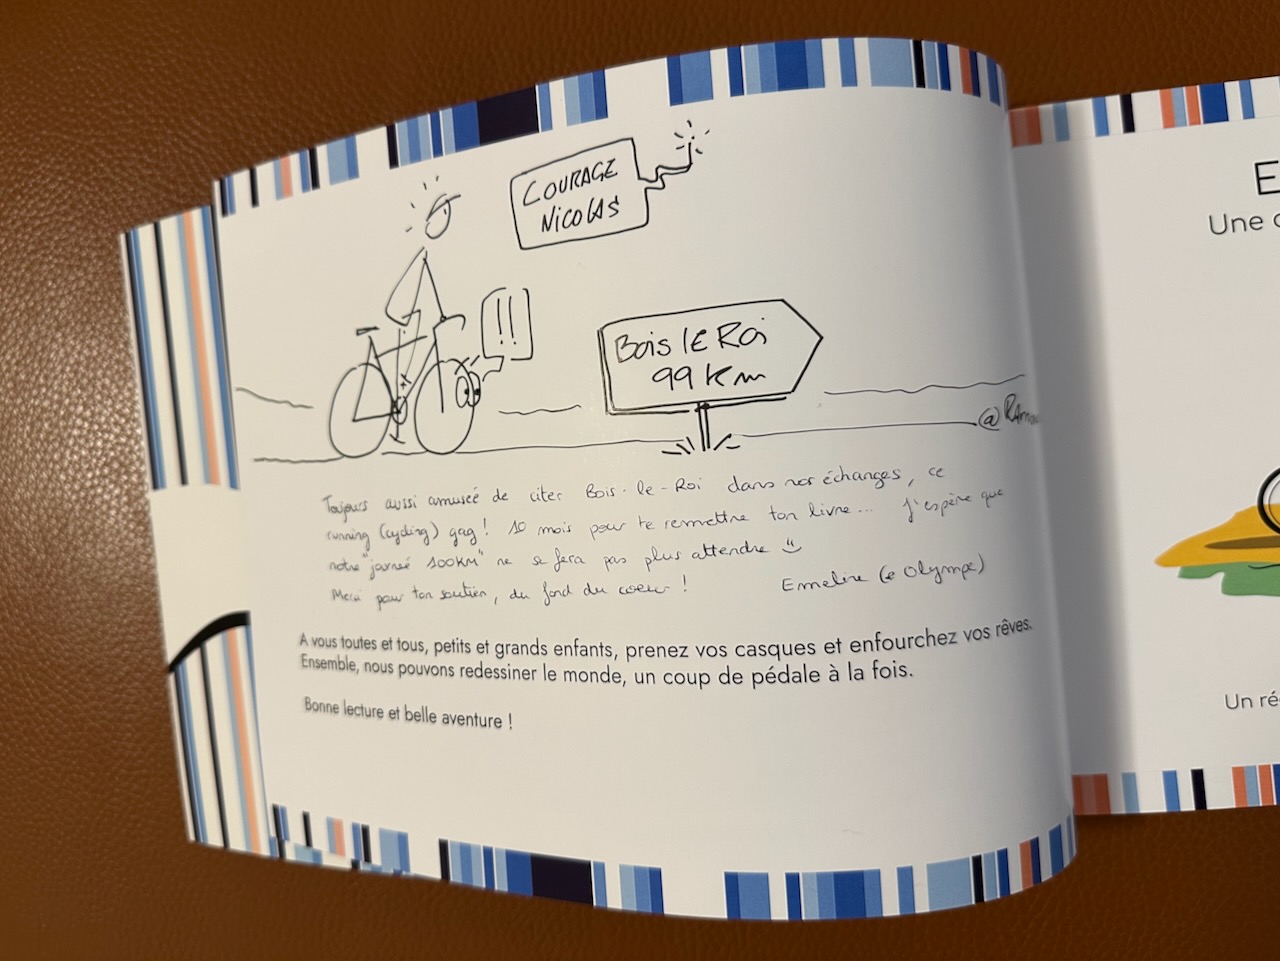 COURAGE
NICOLAS
!!
Bois le Roi
99 Km
Toujours aussi amusée de citer Bois-le-Roi dans nos échanges, ce
running (cycling) gag ! 10 mois pour te remettre ton livre... J'espère que
notre "journée 100KM" ne se fera pas plus attendre
Merci pour ton soutien, du fond du coeur !
Emeline (e Olympe)
A vous toutes et tous, petits et grands enfants, prenez vos casques et enfourchez vos rêves.
Ensemble, nous pouvons redessiner le monde, un coup de pédale à la fois.
Bonne lecture et belle aventure !
E
Une
Un ré